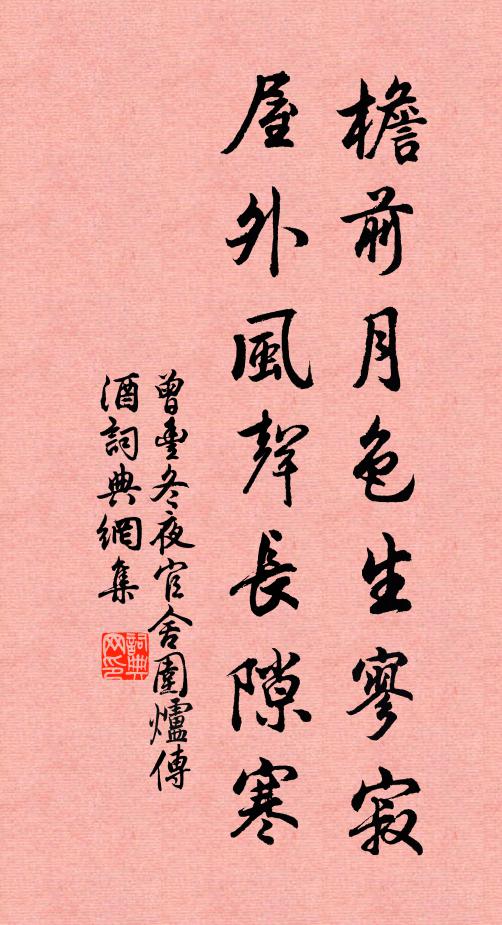 檐前月色生寥寂
屋外風聲長隙寒
曾豐冬夜官舍圍爐傳
酒詞典網集
詞典
网印